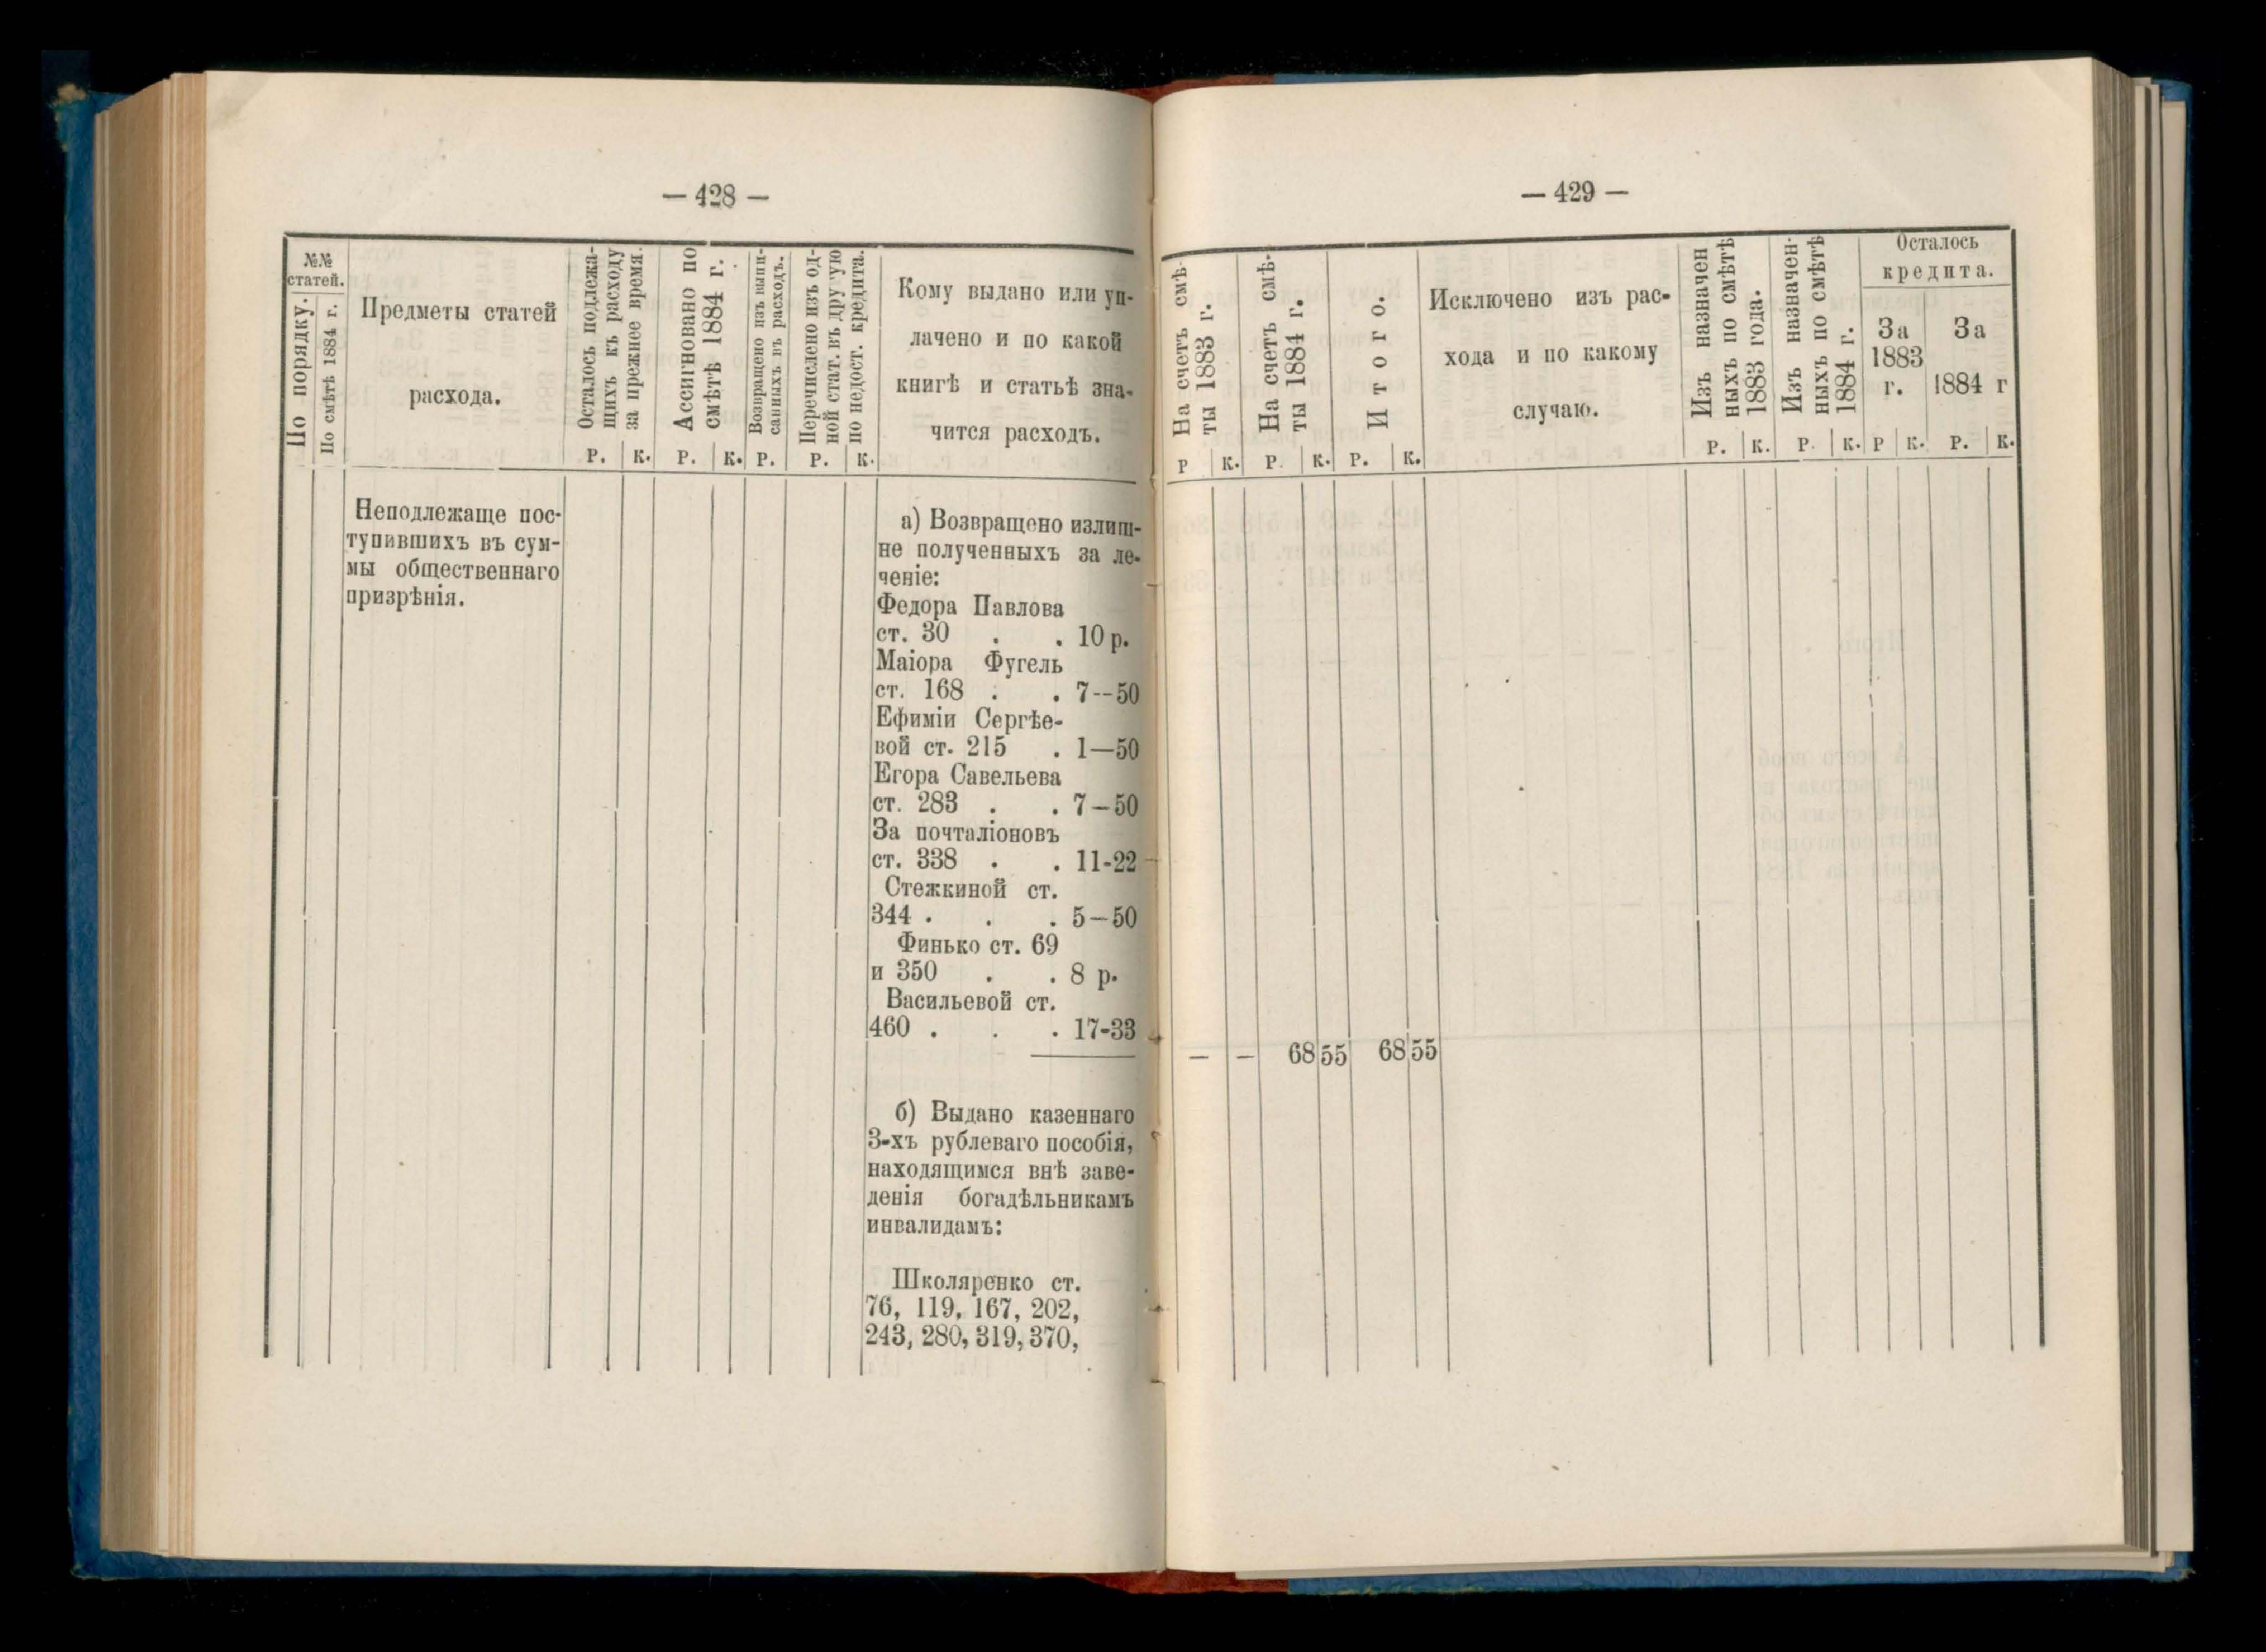 — 428 —
№№
статей.
По порядку.
По смѣтѣ 1884 г.
Предметы статей
расхода.
Осталось подлежа-
щихъ къ расходу
за прежнее время.
Ассигновано по
смѣтѣ 1884 г.
Возвращено изъ выпи-
санныхъ въ расходъ.
Перечислено изъ од-
ной стат. въ дру ую
по недост. кредита.
Кому выдано или уп-
лачено и по какой
книгѣ и статьѣ зна-
чится расходъ.
Р. К. Р. К. Р. Р. К.
Неподлежаще пос-
тупившихъ въ сум-
мы общественнаго
призрѣнія.
а) Возвращено излиш-
не полученныхъ за ле-
ченіе:
Федора Павлова
ст. 30 . . 10 р.
Маіора Фугель
ст. 168 . . 7--50
Ефиміи Сергѣе-
вой ст. 215 . 1—50
Егора Савельева
ст. 283 . . 7—50
За почталіоновъ
ст. 338 . . 11-22
Стежкиной ст.
344 . . . 5—50
Финько ст. 69
и 350 . . 8 р.
Васильевой ст.
460 . . . 17-33
б) Выдано казеннаго
3-хъ рублеваго пособія,
находящимся внѣ заве-
денія богадѣльникамъ
инвалидамъ:
Школяренко ст.
76, 119, 167, 202,
243, 280, 319, 370,
— 429 —
На счетъ смѣ-
ты 1883 г.
На счетъ смѣ-
ты 1884 г.
Итого.
Исключено изъ рас-
хода и по какому
случаю.
Изъ назначен
ныхъ по смѣтѣ
1883 года.
Изъ назначен-
ныхъ по смѣтѣ
1884 г.
Осталось
кредита.
За
1883
г.
За
1884 г
Р К. Р. К. Р. К. Р. К. Р. К. Р К. Р. К.
— — 68 55 68 55